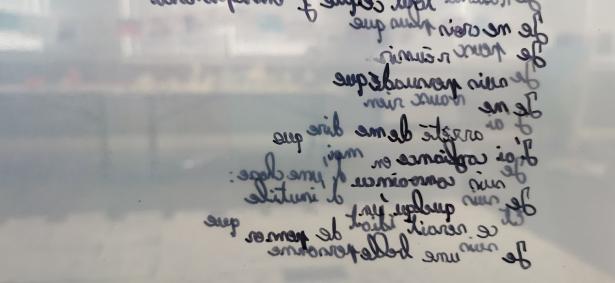 Je ne crois plus que
Je peux réussir
Je suis persuadé que
Je ne vaux rien
J'ai arrêté de me dire que
J'ai confiance en moi,
Je suis convaincu d'une chose :
Je suis quelqu'un d'inutile
Et ce serait idiot de penser que
Je suis une belle personne